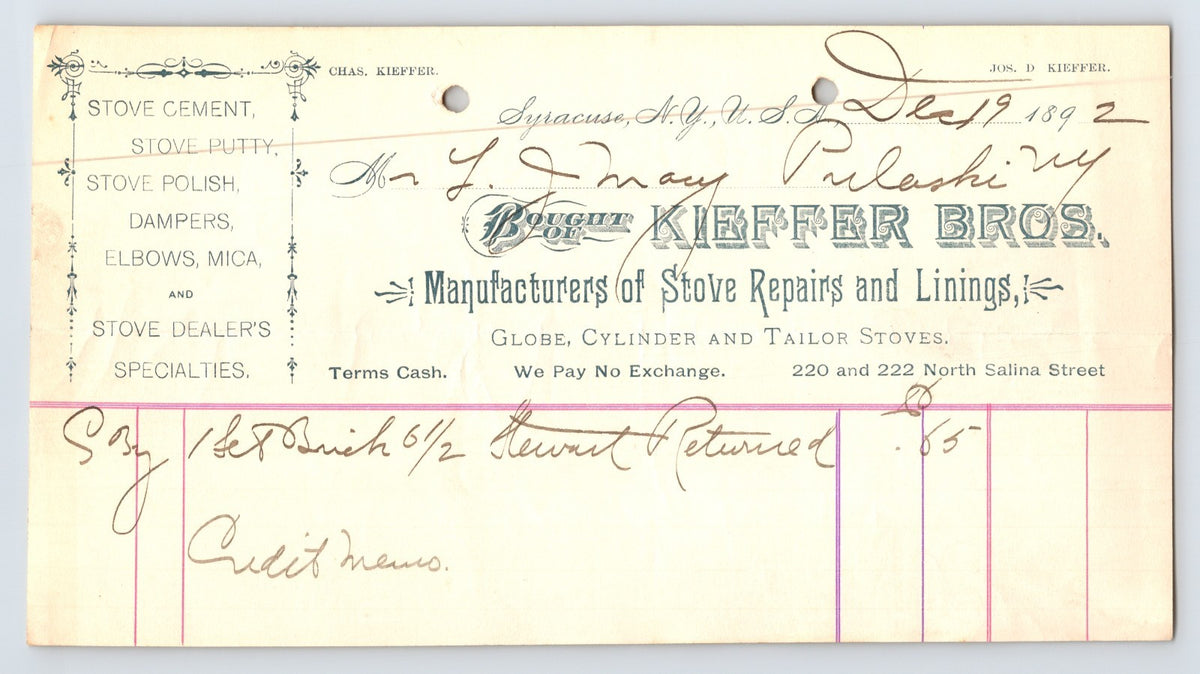 CHAS. KIEFFER.
JOS. D KIEFFER.
STOVE CEMENT,
STOVE PUTTY,
STOVE POLISH,
DAMPERS,
ELBOWS, MICA,
AND
STOVE DEALER'S
SPECIALTIES.
Syracuse, N.Y., U.S.A. Dec 19 1892
Mr L. J Macy Pulaski NY
BOUGHT OF KIEFFER BROS.
Manufacturers of Stove Repairs and Linings,
GLOBE, CYLINDER AND TAILOR STOVES.
Terms Cash. We Pay No Exchange. 220 and 222 North Salina Street
By 1 Set Brick 6 1/2 Stewart Returned .65
Credit Memo.